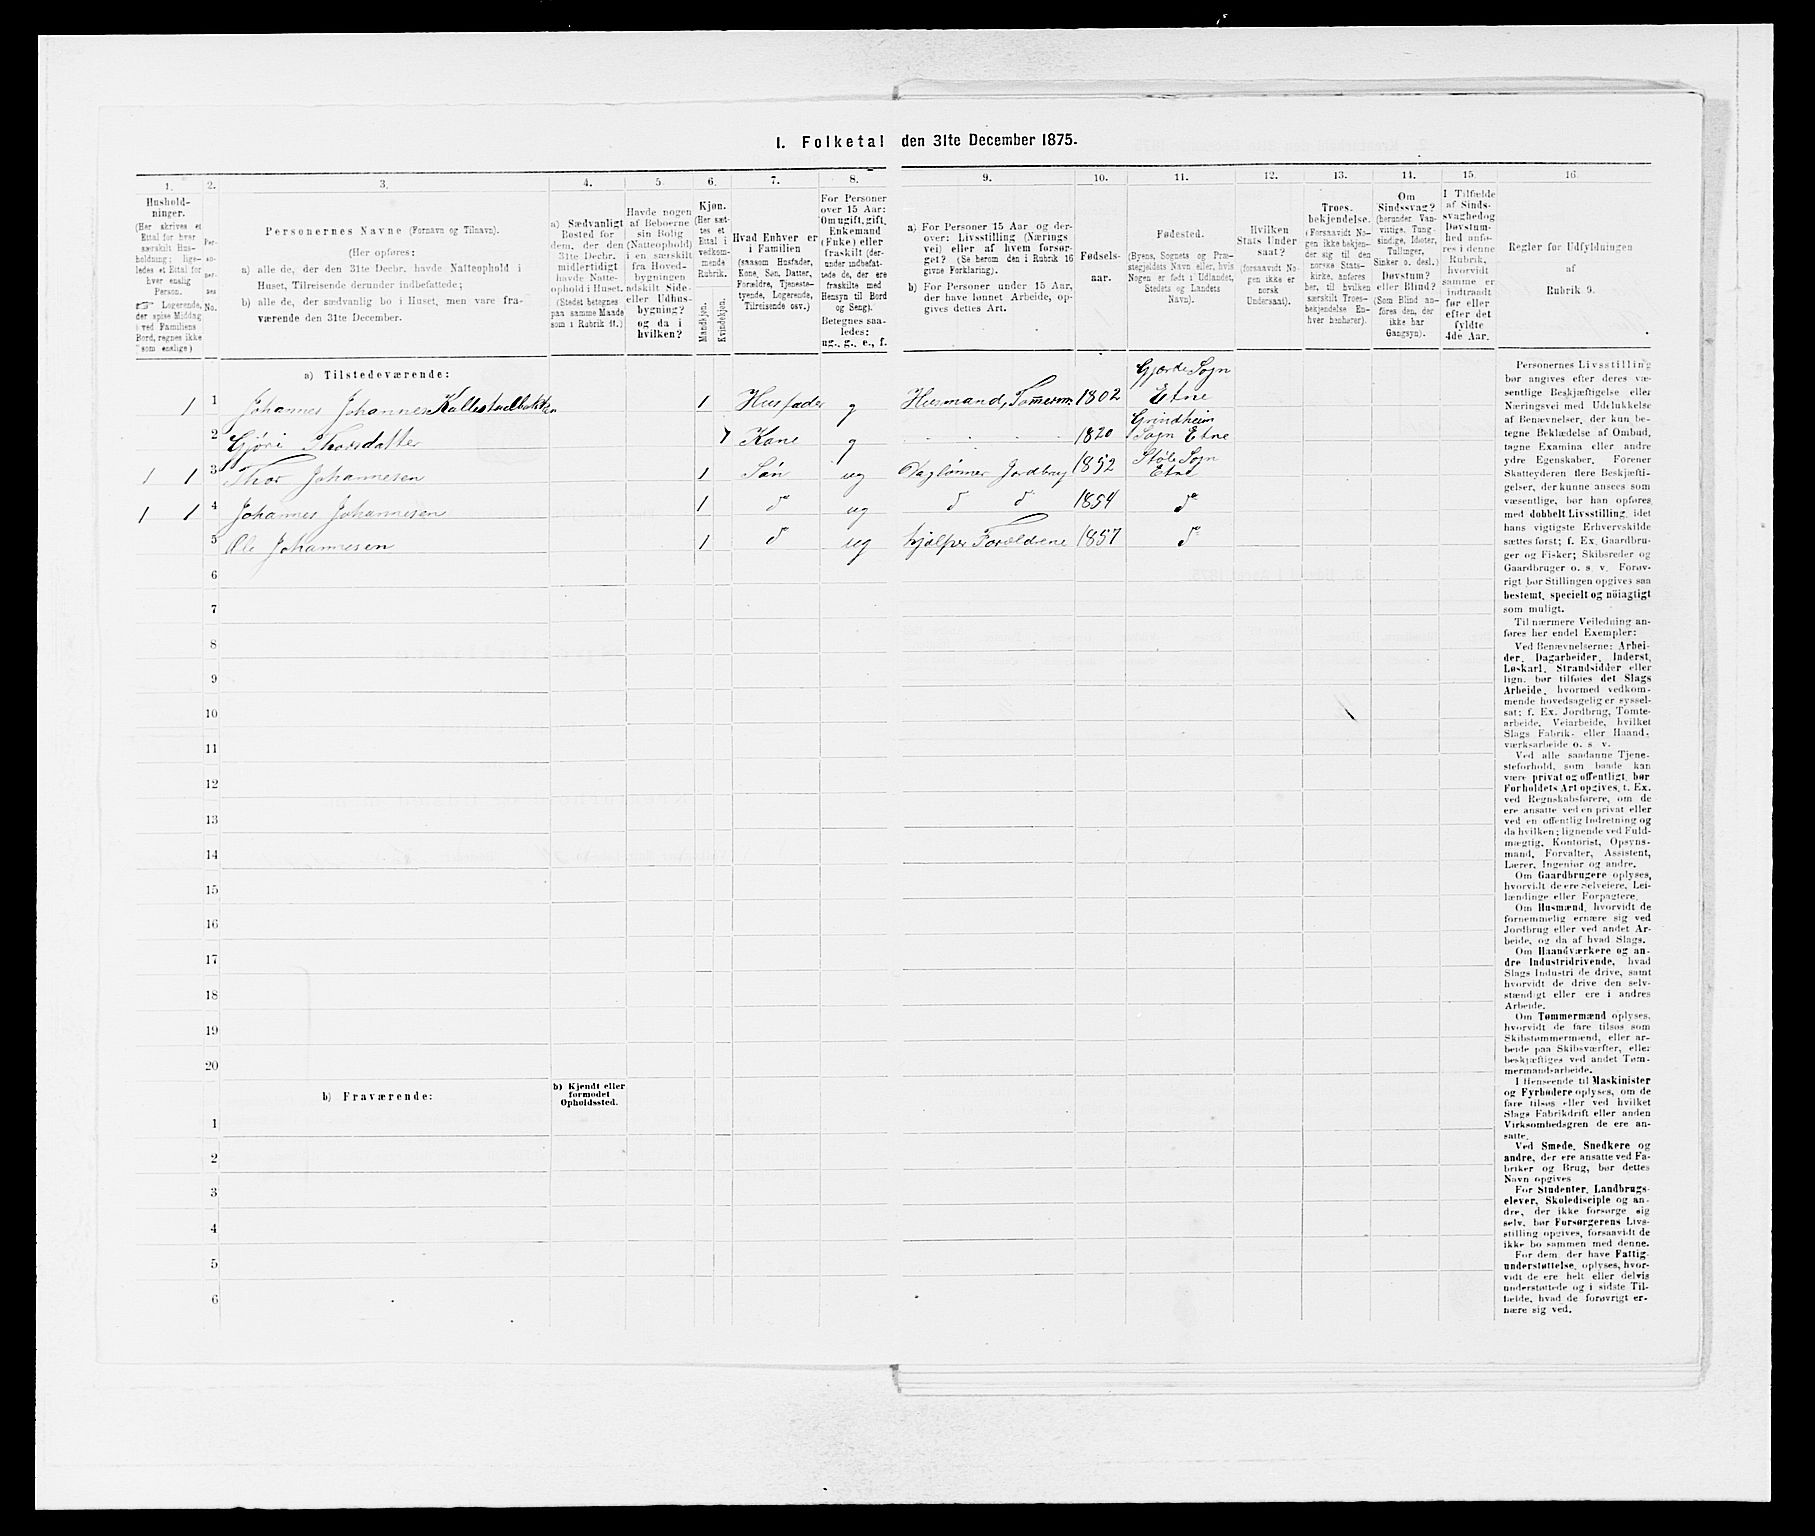 1. Folketal den 31te December 1875.
1. 2. 3. 4. 5. 6. 7. 8. 9. 10. 11. 12. 13. 14. 15. 16.
Hushold-
ninger.
(Her skrives et
Ettal for hver
særskilt Hus-
holdning; lige-
ledes et Ettal for
hver enslig
Person.
Logerende,
der spise Middag
ved Familiens
Bord, regnes ikke
som enslige)
Per-
so-
ner-
nes
No.
Personernes Navne (Fornavn og Tilnavn).
(Her opføres:
a) alle de, der den 31te Decbr. havde Natteophold i
Huset, Tilreisende derunder indbefattede;
b) alle de, der sædvanlig bo i Huset, men vare fra-
værende den 31te December.
a) Sædvanligt
Bosted for
dem, der den
31te Decbr.
midlertidigt
havde Natte-
ophold i Huset.
(Stedet betegnes
paa samme Maade
som i Rubrik 11.)
Havde nogen
af Beboerne
sin Bolig
(Natteophold)
i en særskilt
fra Hoved-
bygningen
adskilt Side-
eller Udhus-
bygning?
og da i
hvilken?
Kjøn.
(Her sæt-
tes et
Ettal i
vedkom-
mende
Rubrik.
Mandkjøn.
Kvindekjøn.
Hvad Enhver er
i Familien
(saasom Husfader,
Kone, Søn, Datter,
Forældre, Tjeneste-
tyende, Logerende,
Tilreisende osv.)
For Personer
over 15 Aar:
Om ugift, gift,
Enkemand
(Enke) eller
fraskilt (der-
under indbefat-
tede de, der ere
fraskilte med
Hensyn til Bord
og Seng).
Betegnes saa-
ledes:
ug., g., e., f.
a) For Personer 15 Aar og der-
over: Livsstilling (Nærings
vei) eller af hvem forsør-
get? (Se herom den i Rubrik 16
givne Forklaring).
b) For Personer under 15 Aar,
der have lønnet Arbeide, op-
gives dettes Art.
Fødsels-
aar.
Fødested.
(Byens, Sognets og Præ-
stegjeldets Navn eller, hvis
Nogen er født i Udlandet,
Stedets og Landets
Navn).
Hvilken
Stats Under
saat?
(forsaavidt No-
gen ikke er
norsk
Undersaat).
Troes.
bekjendelse.
(Forsaavidt No-
gen ikke bekjen-
der sig til den
norske Stats-
kirke, anføres
her, til hvilken
særskilt Troes-
bekjendelse En-
hver henhører).
Om
Sindssvag?
(herunder Van-
vittige, Tung-
sindige, Idioter,
Tullinger,
Sinker o. desl.)
Døvstum?
eller Blind?
(Som Blind an-
føres den, der
ikke har
Gangsyn).
I Tilfælde
af Sinds-
svaghed og
Døvstum-
hed anfø-
res i denne
Rubrik,
hvorvidt
samme er
indtraadt
før eller
efter det
fyldte
4de Aar.
Regler for Udfyldningen
af
Rubrik 9.
a) Tilstedeværende:
1 1 Johannes Johannes Kallestadbakken 1 Husfader g Husmand, Tømerm. 1802 Gjærde Sogn Etne
2 Gjøri Thorsdatter 1 Kone g 1820 Grindheim Sogn Etne
1 1 3 Thor Johannesen 1 Søn ug Daglønner Jordbrug 1852 Støle Sogn Etne
1 1 4 Johannes Johannesen 1 do ug do do 1854 do
5 Ole Johannesen 1 do ug hjælper Forældrene 1857 do
6
7
8
9
10
11
12
13
14
15
16
17
18
19
20
b) Fraværende:
b) Kjendt eller
formodet
Opholdssted.
1
2
3
4
5
6
Personernes Livsstilling
bør angives efter deres væ-
sentlige Beskjæftigelse eller
Næringsvei med Udelukkelse
af Benævnelser, der kun be-
tegne Beklædelse af Ombud,
tagne Examina eller andre
ydre Egenskaber. Forener
Skatteyderen flere Beskjæfti-
gelser, der kunne ansees som
væsentlige, bør han opføres
med dobbelt Livsstilling, idet
hans vigtigste Erhvervskilde
sættes først; f. Ex. Gaardbru-
ger og Fisker; Skibsreder og
Gaardbruger o. s. v. Forøv-
rigt bør Stillingen opgives saa
bestemt, specielt og nöiagtigt
som muligt.
Til nærmere Veiledning an-
føres her endel Exempler:
Ved Benævnelserne: Arbei-
der, Dagarbeider, Inderst,
Løskarl, Strandsidder eller
lign. bør tilføies det Slags
Arbeide, hvormed vedkom-
mende hovedsagelig er syssel-
sat; f. Ex. Jordbrug, Tomte-
arbeide, Veiarbeide, hvilket
Slags Fabrik- eller Haand-
værksarbeide o. s. v.
Ved alle saadanne Tjene-
steforhold, som baade kan
være privat og offentligt, bør
Forholdets Art opgives, t. Ex.
ved Regnskabsførere, om de
ere ansatte ved en privat eller
ved en offentlig Indretning og
da hvilken; lignende ved Fuld-
mægtig, Kontorist, Opsyns-
mand, Forvalter, Assistent,
Lærer, Ingeniør og andre.
Om Gaardbrugere oplyses,
hvorvidt de ere Selveiere, Lei-
lændinge eller Forpagtere.
Om Husmænd, hvorvidt de
fornemmelig ernære sig ved
Jordbrug eller ved andet Ar-
beide, og da af hvad Slags.
Om Haandværkere og an-
dre Industridrivende, hvad
Slags Industri de drive, samt
hvorvidt de drive den selv-
stændigt eller ere i andres
Arbeide.
Om Tømmermænd oplyses,
hvorvidt de fare tilsøs som
Skibstømmermænd, eller ar-
beide paa Skibsværfter, eller
beskjæftiges ved andet Tøm-
mermandsarbeide.
I Henseende til Maskinister
og Fyrbødere oplyses, om de
fare tilsøs eller ved hvilket
Slags Fabrikdrift eller anden
Virksomhedsgren de ere an-
satte.
Ved Smede, Snedkere og
andre, der ere ansatte ved Fa-
briker og Brug, bør dettes
Navn opgives
For Studenter, Landbrugs-
elever, Skoledisciple og an-
dre, der ikke forsørge sig
selv, bør Forsørgerens Livs-
stilling opgives, forsaavidt de
ikke bo sammen med denne.
For dem, der have Fattig-
understøttelse, oplyses, hvor-
vidt de ere helt eller delvis
understøttede og i sidste Til-
fælde, hvad de forøvrigt er-
nære sig ved.